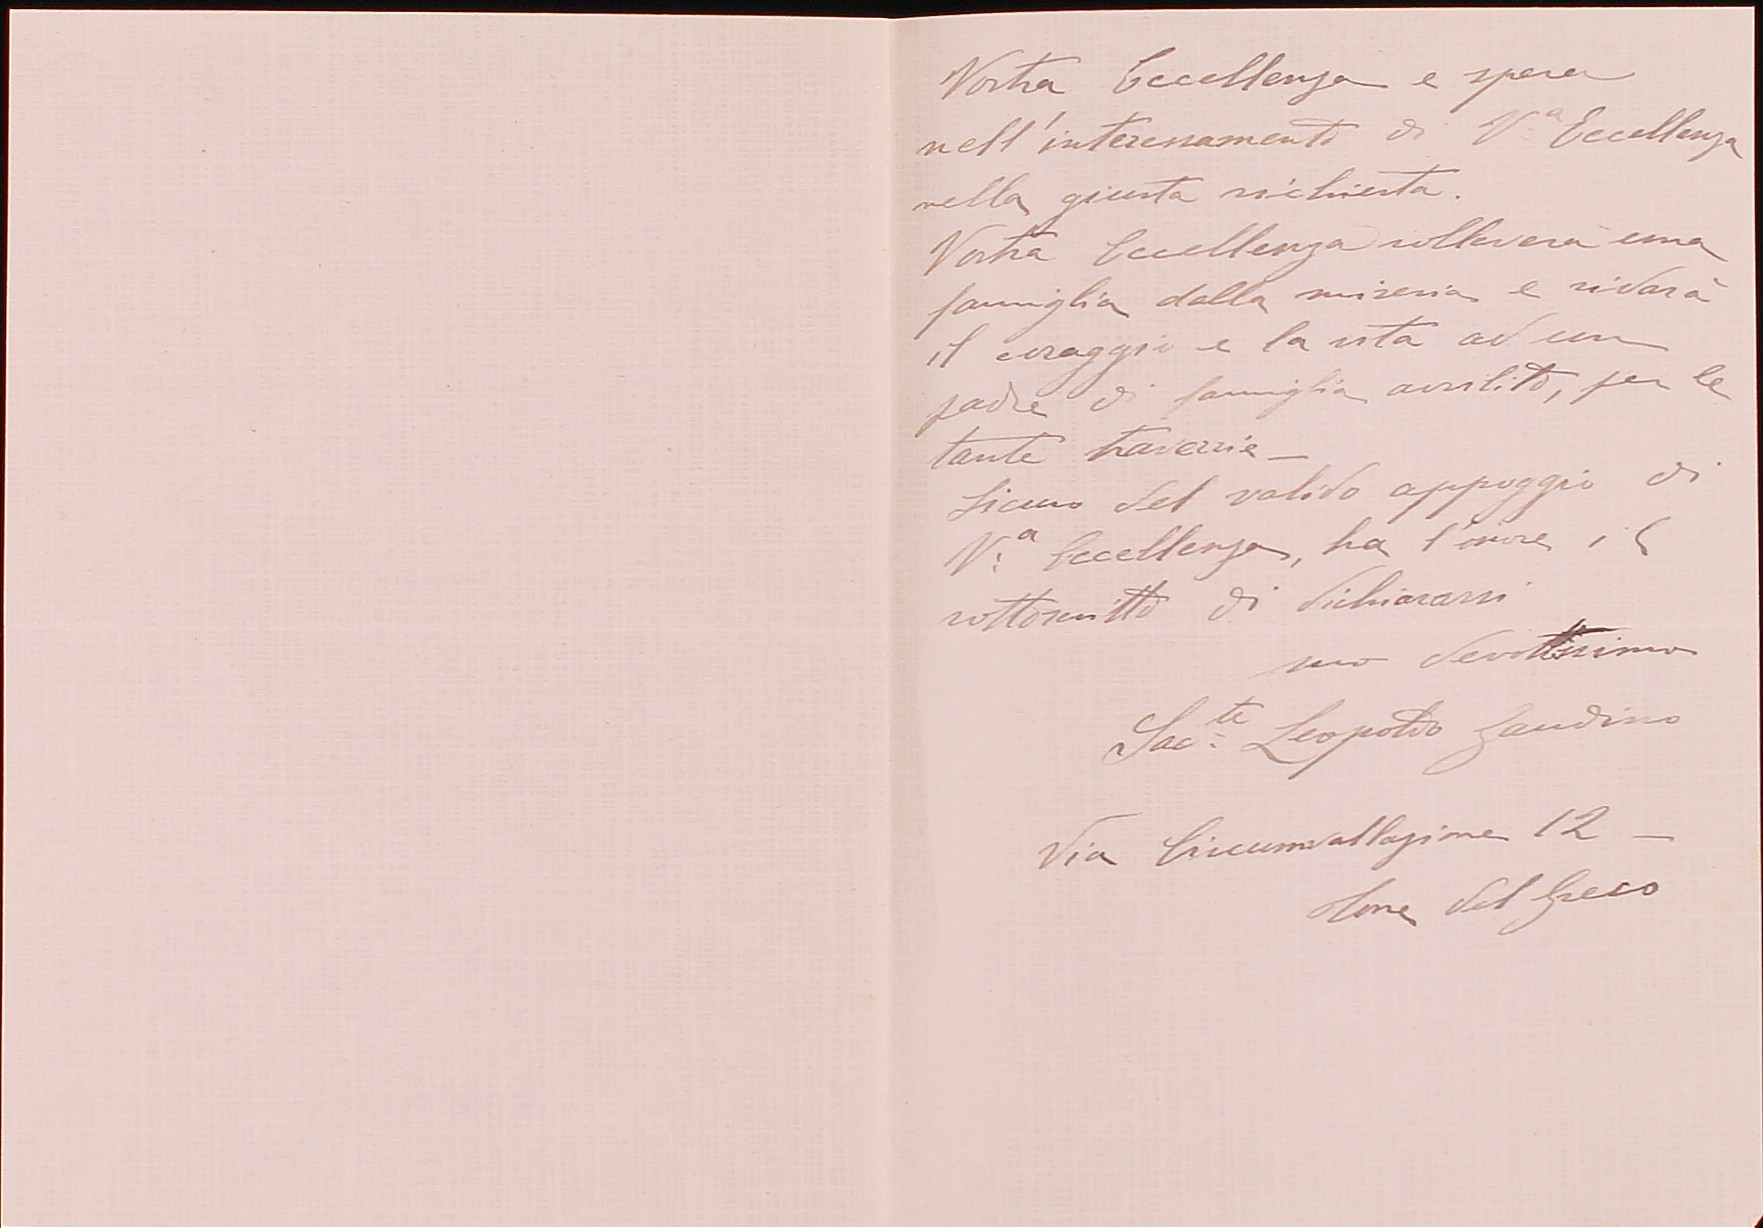 Vostra Eccellenza e spera
nell'interessamento di V.ª Eccellenza
nella giusta richiesta.
Vostra Eccellenza solleverà una
famiglia dalla miseria e ridarà
il coraggio e la vita ad un
padre di famiglia avvilito, per le
tante traversie _
Sicuro del valido appoggio di
V.ª Eccellenza, ha l'onore, il
sottoscritto di dichiararsi
suo devotissimo
Sac.te Leopoldo Gaudino
Via Circumvallazione 12 _
Torre del Greco